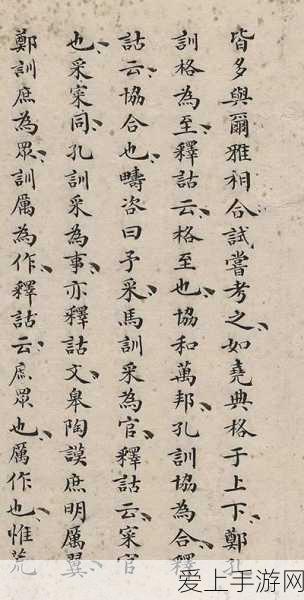 皆多與爾雅相合試嘗考之如堯典格于上下鄭孔
訓格為至釋詁云格至也協和萬邦孔訓協為合釋
詁云協合也疇咨曰予采馬訓采為官釋詁云寀官
也采寀同孔訓采為事亦釋詁文皋陶謨庶明厲翼
鄭訓庶為眾訓厲為作釋詁云庶眾也厲作也惟荒
爱上手游网